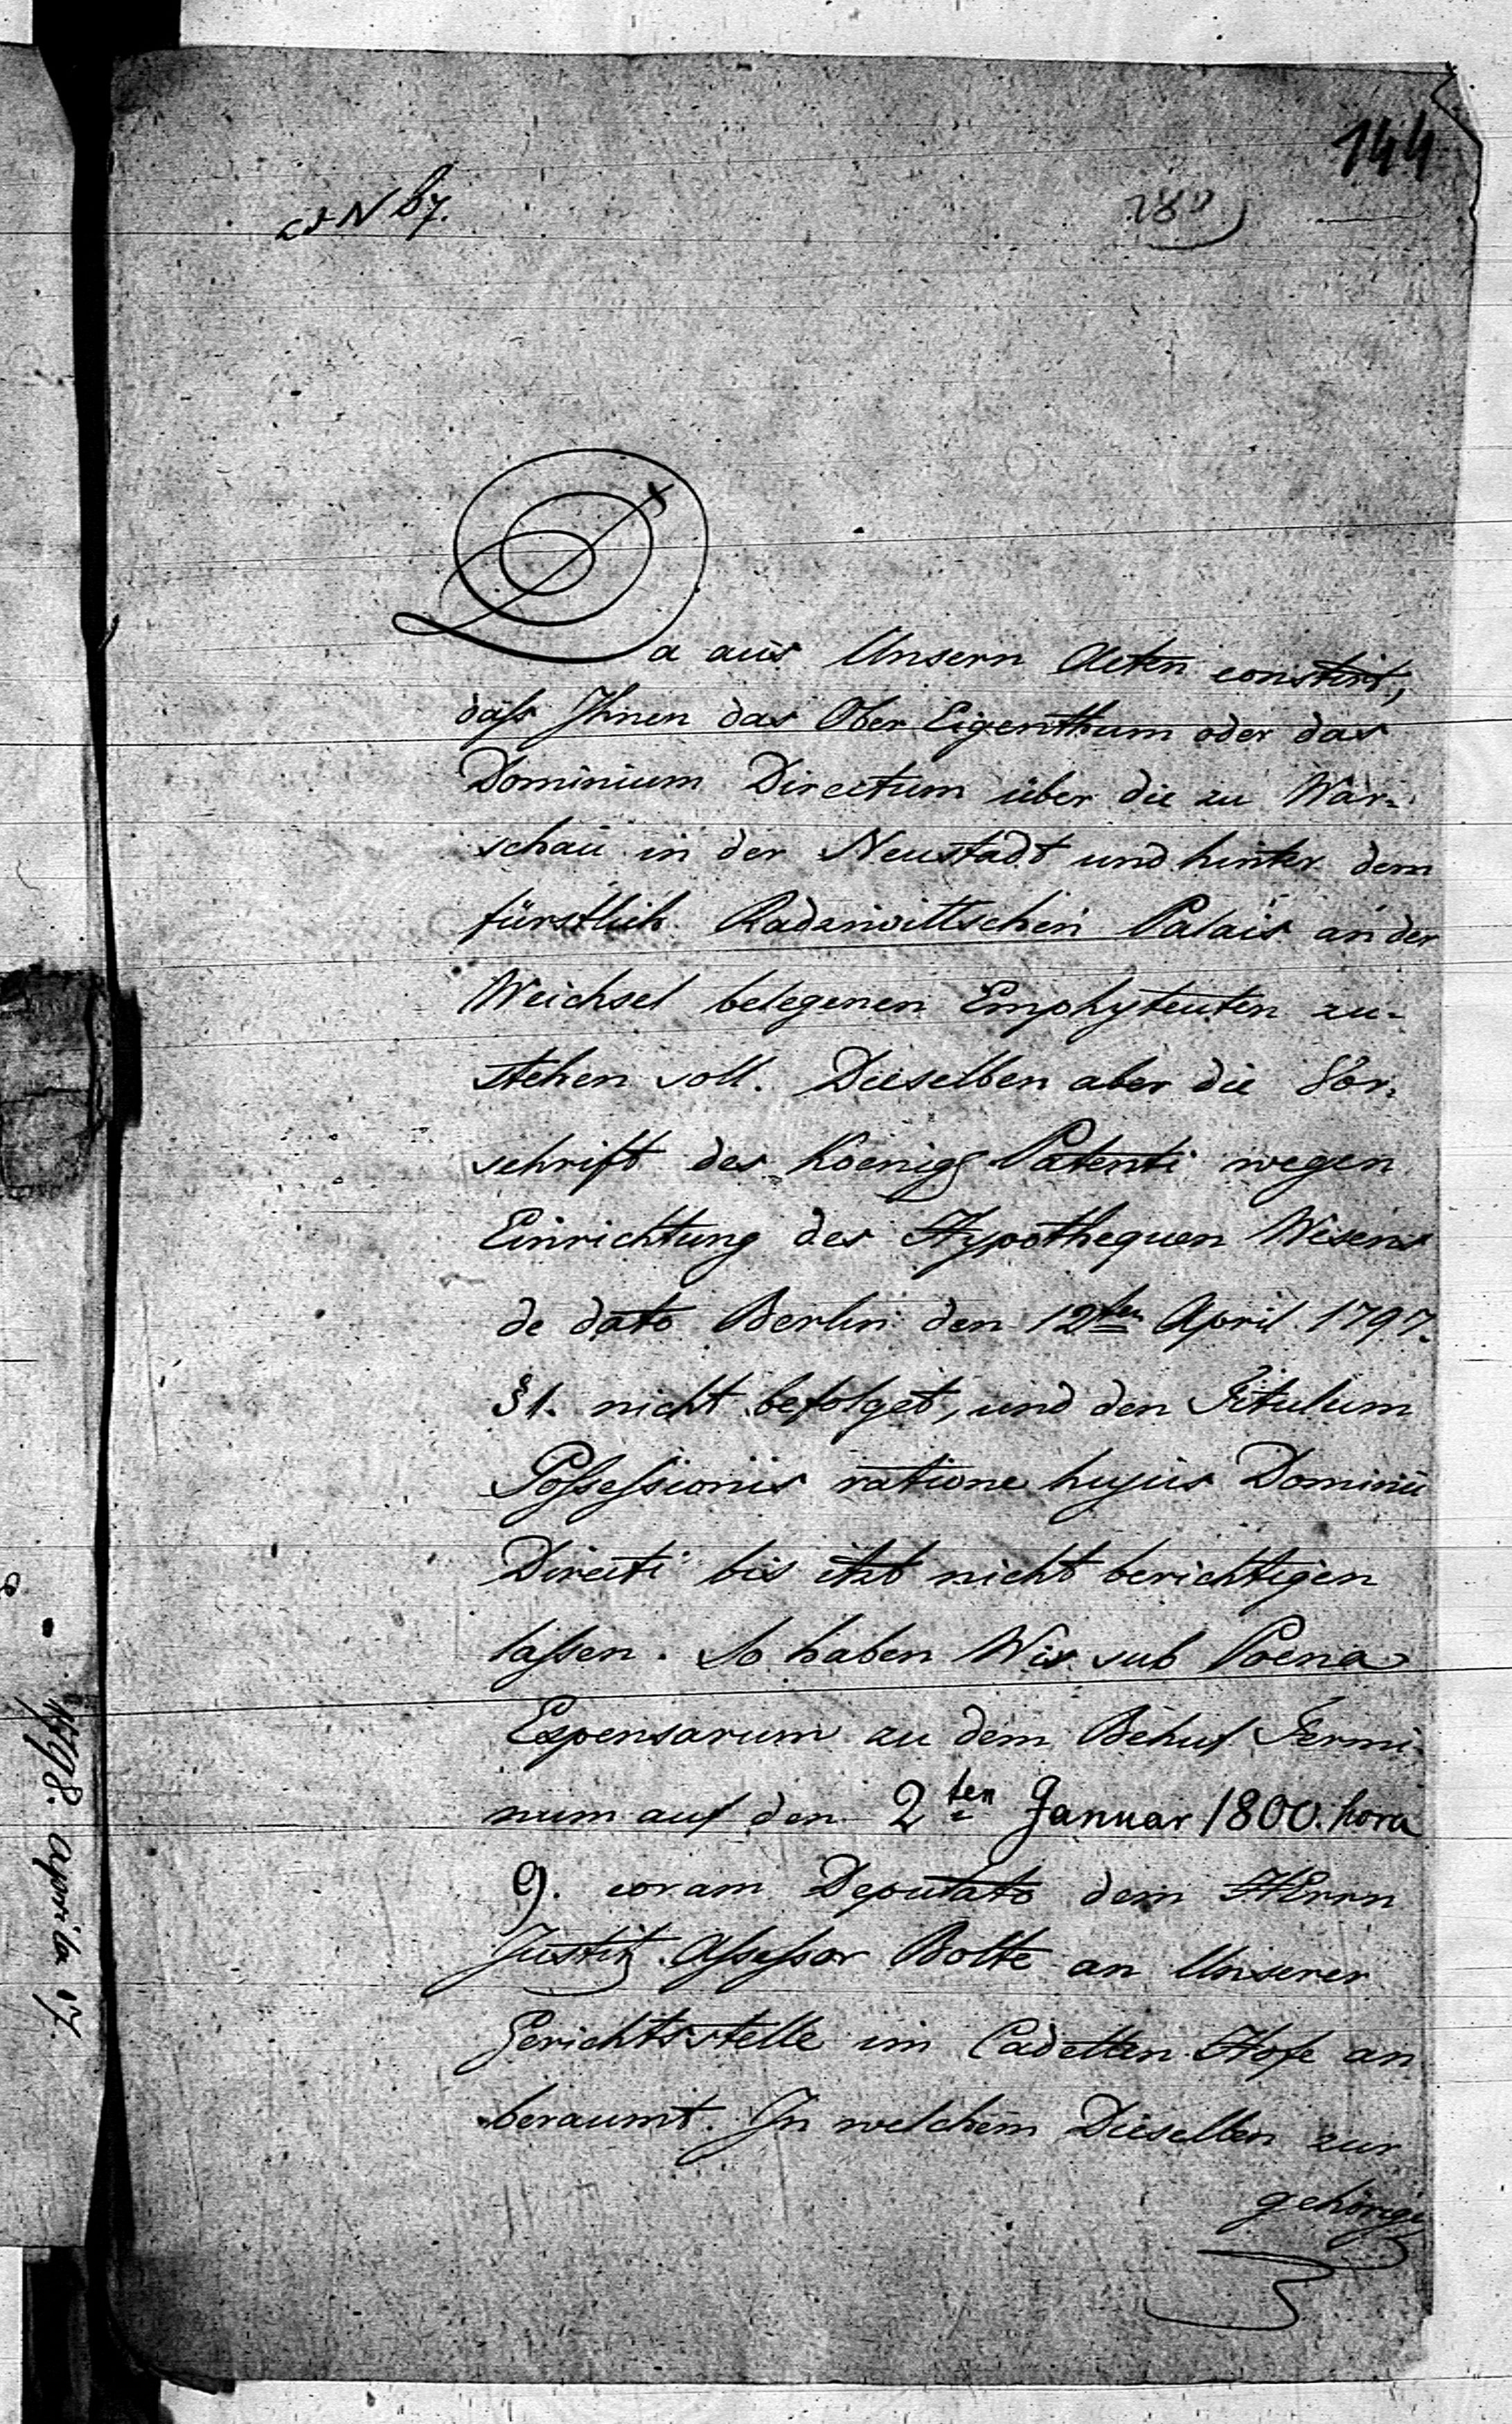 144
ad N 67.
Da aus Unsern Acten constirt,
daſs Ihnen das Ober Eigenthum oder das
Dominium Directum über die zu War-
schau in der Neustadt und hinter dem
fürstlich Radziwillschen Palais an der
Weichsel belegenen Emphyteuten zu-
stehen soll. Dieselben aber die Vor-
schrift des Koenigl Patenti wegen
Einrichtung des Hypothequen Wesens
de dato Berlin den 12ten April 1797.
§ 1. nicht befolget, und den Titulum
Poſseſsionis ratione hujus Dominii
Directi bis itzt nicht berichtigen
laſsen. So haben Wir sub Poena
Expensarum zu dem Behuf Termi-
num auf den 2ten Januar 1800. hora
9. coram Deputato dem Herrn
Justitz Aſseſsor Bolte an Unserer
Gerichtsstelle im Cadetten Hofe an
beraumt. In welchem Dieselben zur
gehörige
1798. Aprila 17.